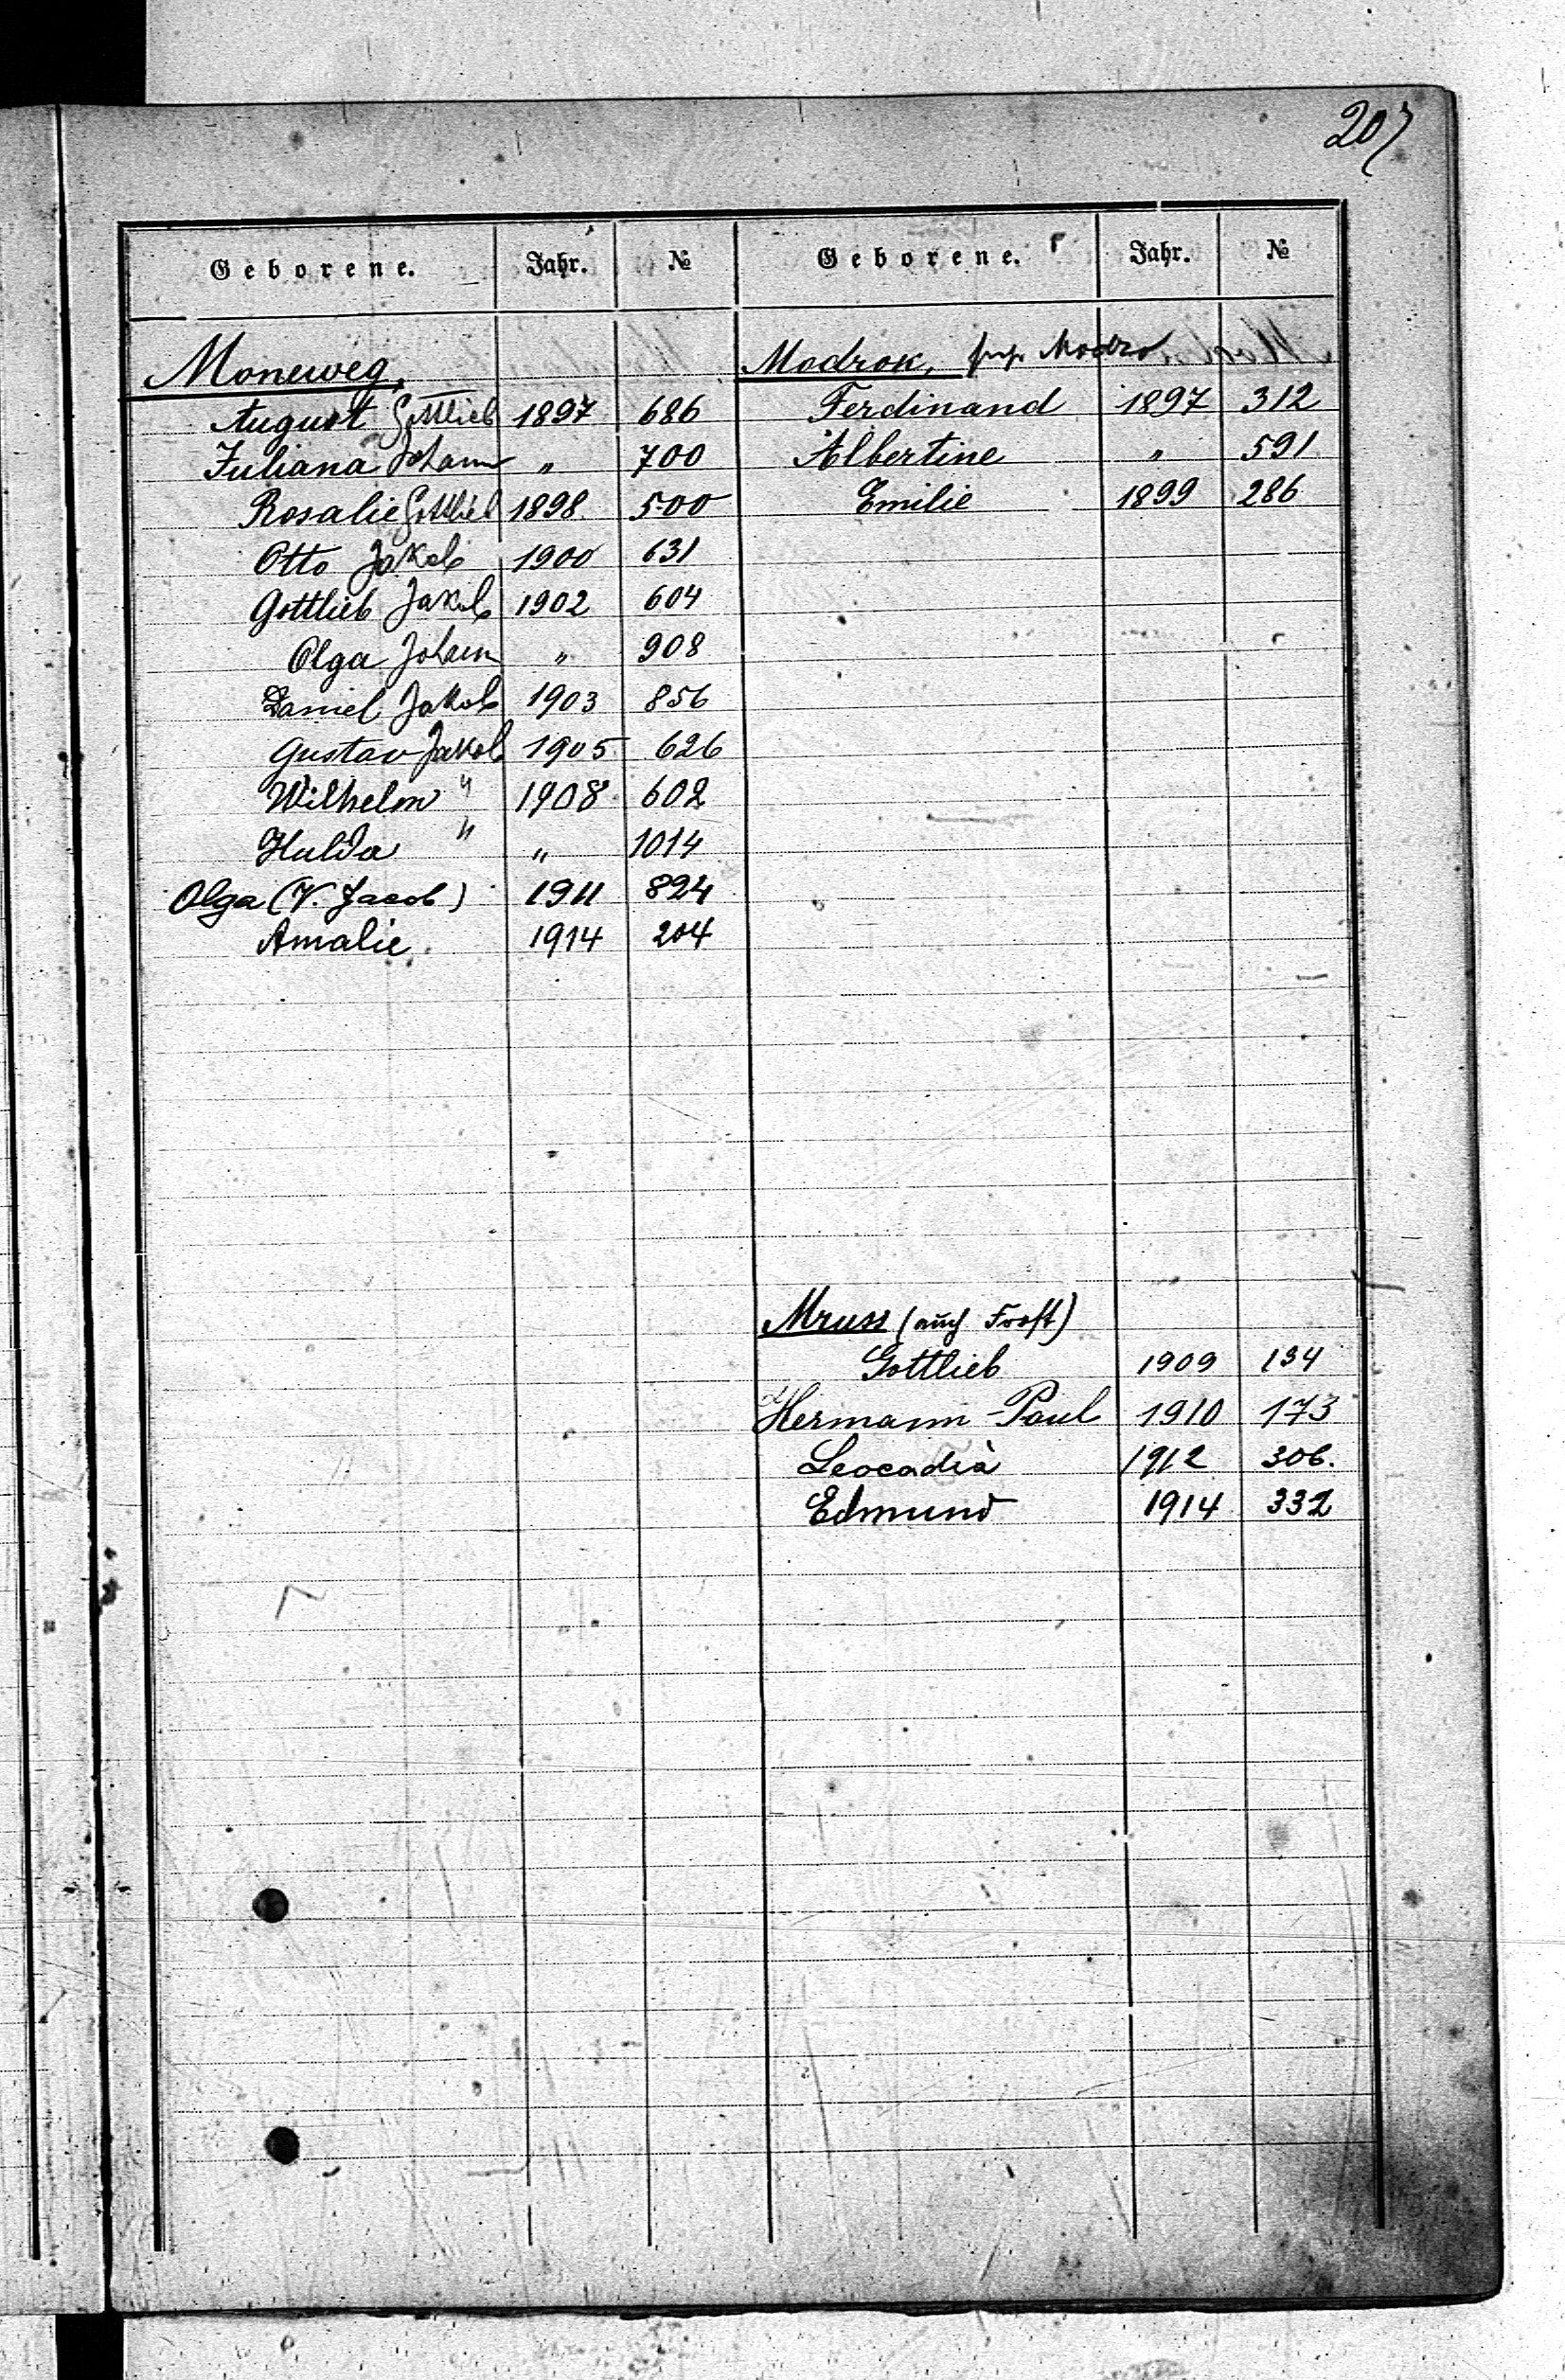 207
Geborene. Jahr. №
Moneweg,
August Gottlieb 1897 686
Juliana Johann " 700
Rosalie Gottlieb 1898 500
Otto Jakob 1900 631
Gottlieb Jakob 1902 604
Olga Johann " 908
Daniel Jakob 1903 856
Gustav Jakob 1905 626
Wilhelm " 1908 602
Hulda " " 1014
Olga (V. Jacob) 1911 824
Amalie 1914 204
Geborene. Jahr. №
Modrok, Modro
Ferdinand 1897 312
Albertine " 591
Emilie 1899 286
Mruss (auch Frost)
Gottlieb 1909 134
Hermann-Paul 1910 173
Leocadia 1912 306.
Edmund 1914 332